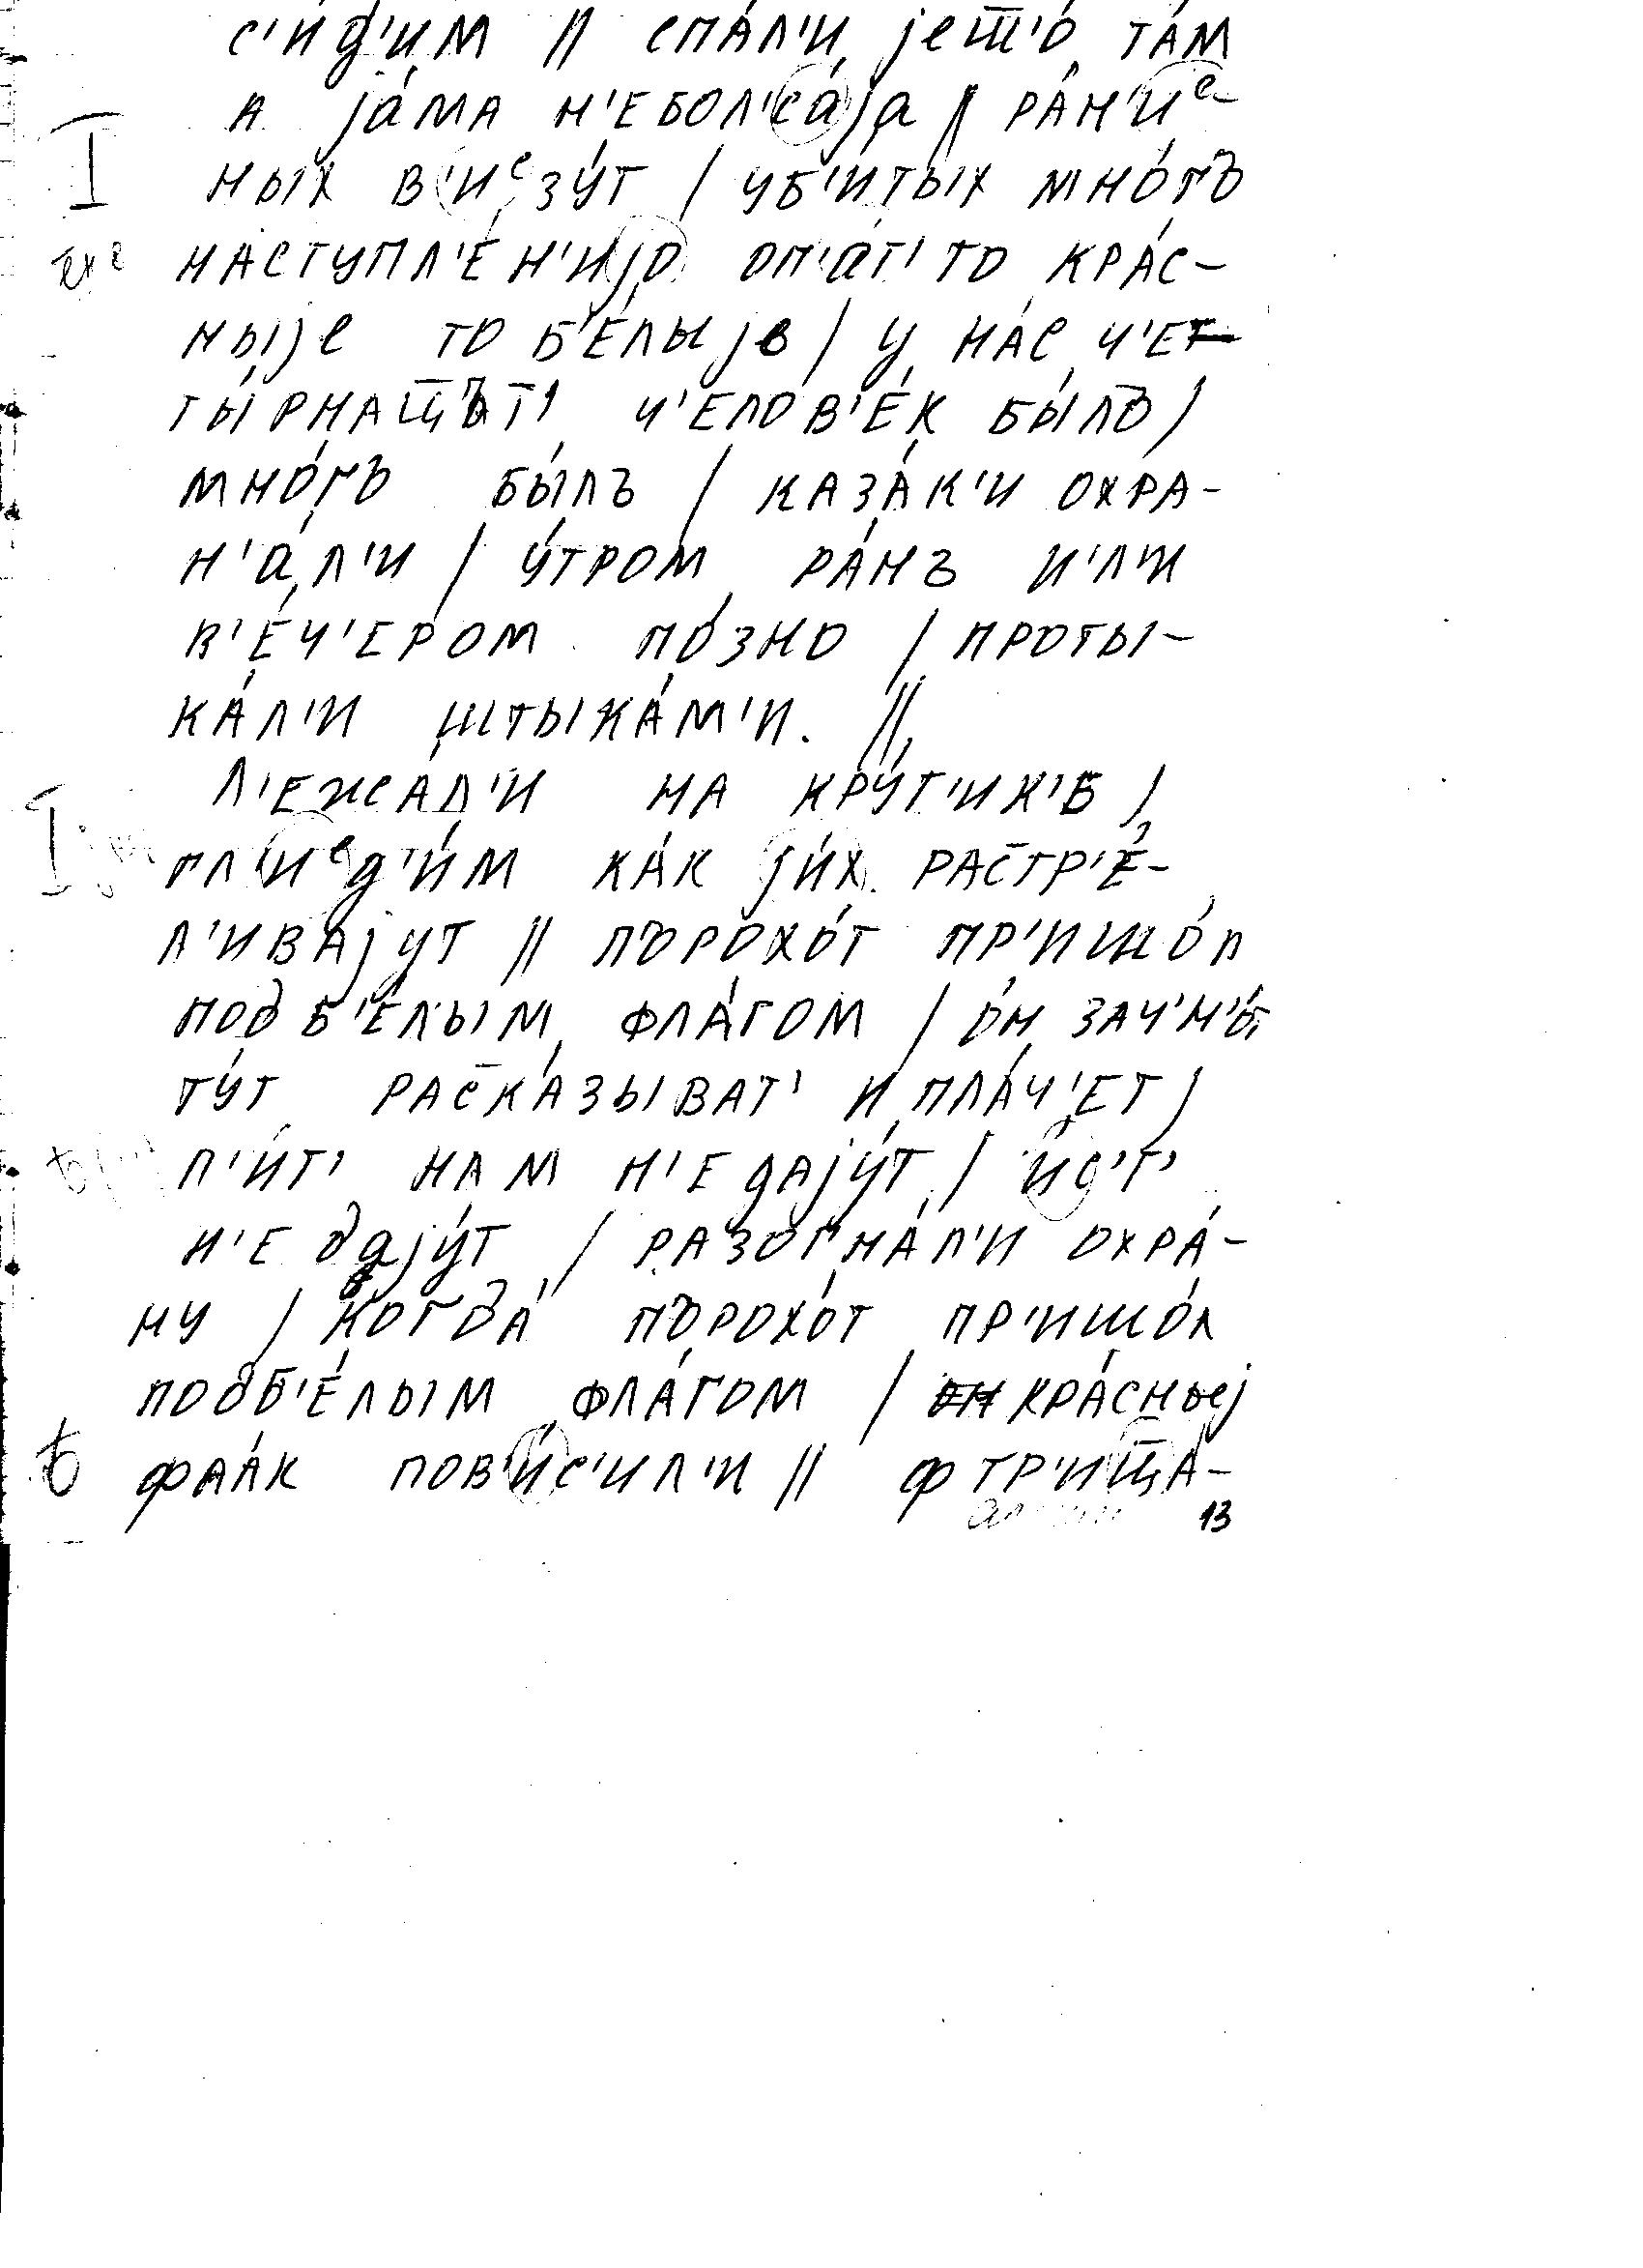 с'ид'и́м // спа́л'и јеш̅'о́ там
а ја́ма н'ебол'са́ја // ра́н'иᵉ-
ных в'иᵉзу́т / уб'и́тых мно́гъ
наступл'е́н'ијо оп'а́т' то кра́с-
ныје то б'е́лыје / у на́с ч'е-
ты́рнац̅ът' ч'елов'е́к бы́лъ /
мно́гъ бы́лъ / каза́к'и охра-
н'а́л'и / у́тром ра́нъ и́л'и
в'е́ч'ером по́зно / проты-
ка́л'и штыка́м'и. //
л'ежа́л'и на кру́т'ик'е /
гл'иᵉд'и́м ка́к јих растр'е́-
л'ивајут // пърохо́т пр'ишо́л
под б'е́лым фла́гом / о́н зач'н'о́т
ту́т рас̅ка́зыват' и пла́ч'ет /
п'и́т' нам н'е дају́т / и́с'т'
н'е дају́т / разогна́л'и охра́-
ну / когда́ пърохо́т пр'ишо́л
под б'е́лым фла́гом / кра́сныеј
фла́к пов'и́с'ил'и // ф тр'иц̅а-
13